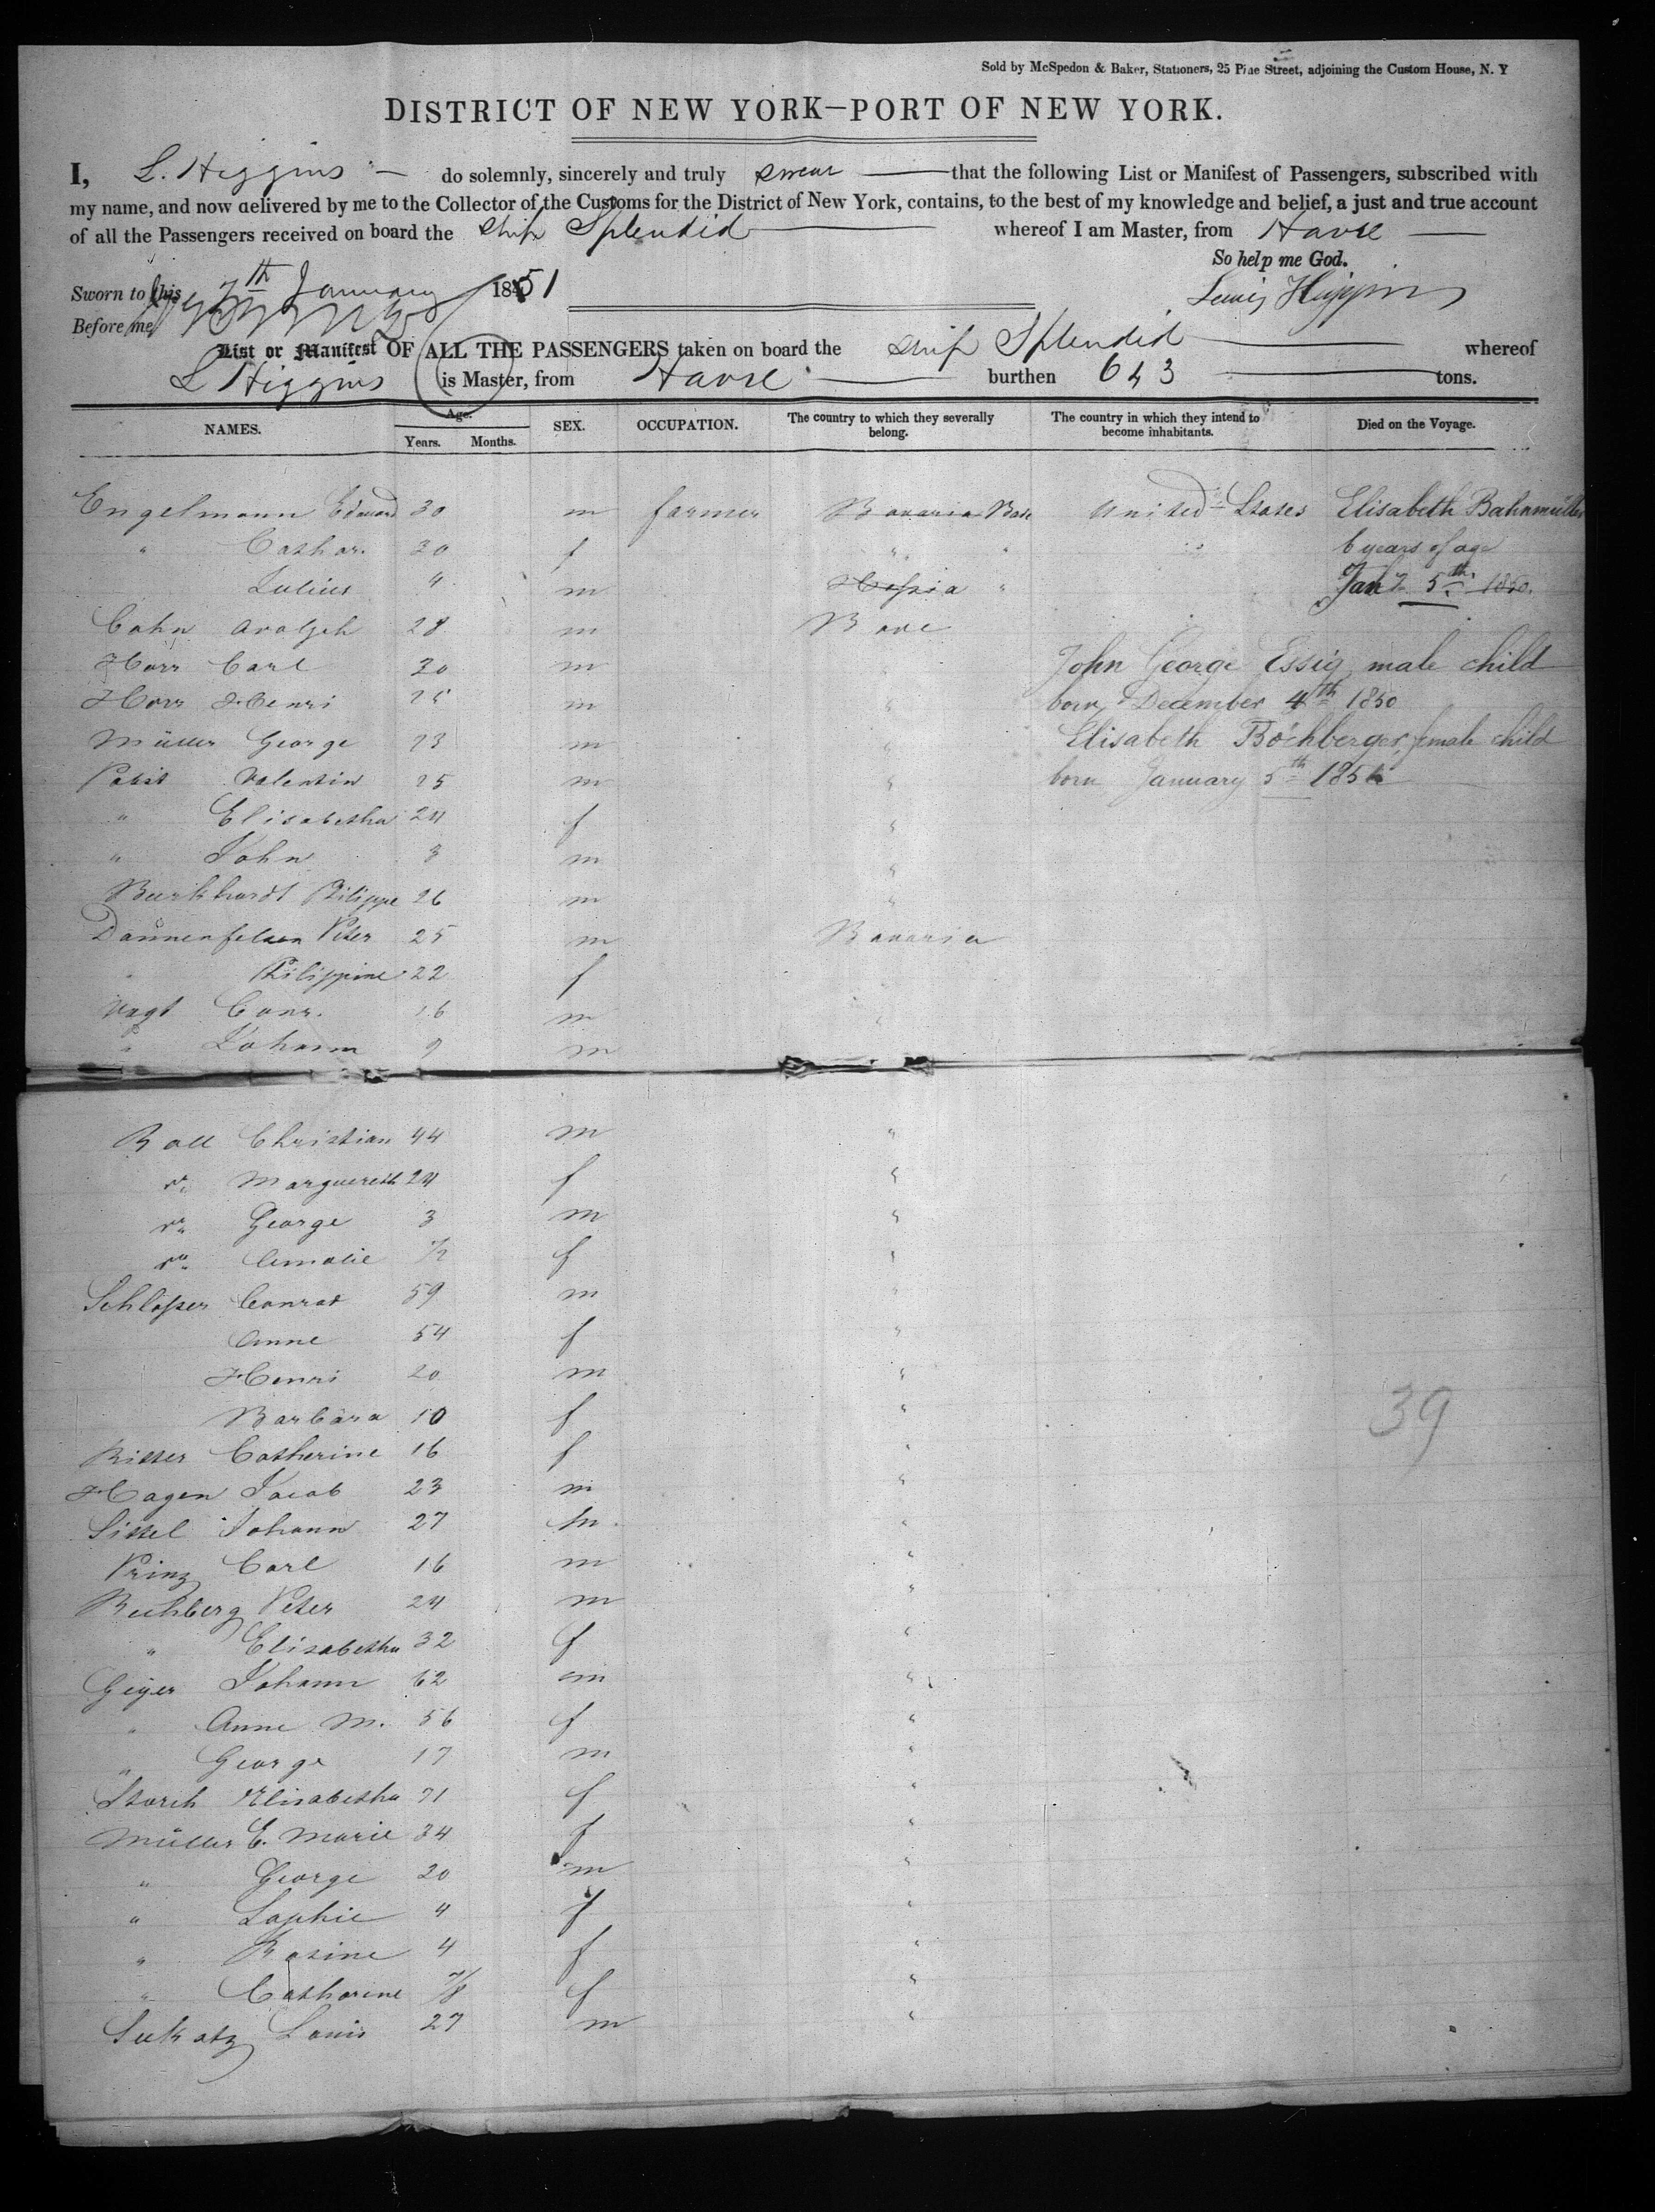 Sold by McSpedon & Baker, Stationers, 25 Pine Street, adjoining the Custom House, N. Y
DISTRICT OF NEW YORK—PORT OF NEW YORK.
I, L. Higgins — do solemnly, sincerely and truly swear — that the following List or Manifest of Passengers, subscribed with
my name, and now delivered by me to the Collector of the Customs for the District of New York, contains, to the best of my knowledge and belief, a just and true account
of all the Passengers received on board the Ship Splendid — whereof I am Master, from Havre —
So help me God.
Sworn to this 7th January 1851 Lewis Higgins
Before me
List or Manifest OF ALL THE PASSENGERS taken on board the Ship Splendid — whereof
L Higgins is Master, from Havre — burthen 643 — tons.
NAMES. Age. Years. Months. SEX. OCCUPATION. The country to which they severally belong. The country in which they intend to become inhabitants. Died on the Voyage.
Engelmann Edward 30 m farmer Bavaria Bade United States Elisabeth Bahnmüller
" Cathar. 30 f " " 6 years of age
Julius 4 m Hessia " Jany 5th 1850.
Cahn Adolph 28 m Bade
Horr Carl 30 m John George Essig male child
Horr Henri 25 m " born December 4th 1850
Müller George 23 m " Elisabeth Böchberger, female child
Valentin 25 m " born January 5th 1851
" Elisabetha 24 f "
" John 3 m "
Burkhardt Philippe 26 m "
Dannenfelsen Peter 25 m Bavaria
" Philippine 22 f
Vogt Conr. 16 m "
" Johann 9 m
Ball Christian 44 m "
do. Marguereth 24 f "
do. George 3 m "
do. Amalie 1/2 f "
Schlosser Conrad 59 m "
Anne 54 f "
Henri 20 m "
Barbara 10 f "
39
Ritter Catherine 16 f "
Hagen Jacob 23 m "
Sittel Johann 27 m "
Prinz Carl 16 m "
Buchberg Peter 24 m "
" Elisabetha 32 f "
Geiger Johann 62 m "
" Anne M. 56 f "
" George 17 m "
Storch Elisabetha 71 f "
Müller E. Marie 34 f "
" George 20 m "
" Sophie 4 f "
" Rosine 4 f "
" Catharine 7/8 f "
Louis 27 m "